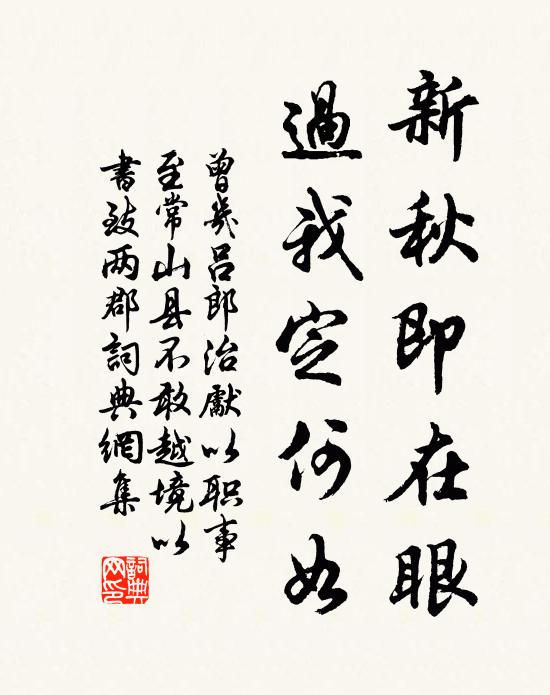 新秋即在眼
過我定何如
曾幾呂郎治獻以职事
至常山县不敢越境以
書致两郡詞典網集
詞典网印